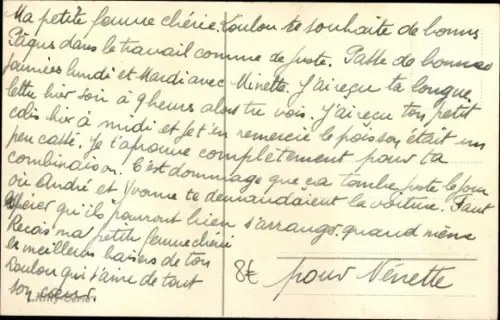 Ma petite femme chérie. Loulou te souhaite de bonnes
Pâques dans le travail comme de juste. Passe de bonnes
journées lundi et Mardi avec Minette. J'ai reçu ta longue
lettre hier soir à 9 heures alors tu vois. J'ai reçu ton petit
colis hier à midi et je t'en remercie le poisson était un
peu cassé. Je t'approuve complètement pour ta
combinaison. C'est dommage que ça tombe juste le jour
où André et Yvonne te demandaient la voiture. Faut
espérer qu'ils pourront bien s'arranger quand même
Reçois ma petite femme chérie
les meilleurs baisers de ton
Loulou qui t'aime de tout
son coeur.
8€
pour Nénette